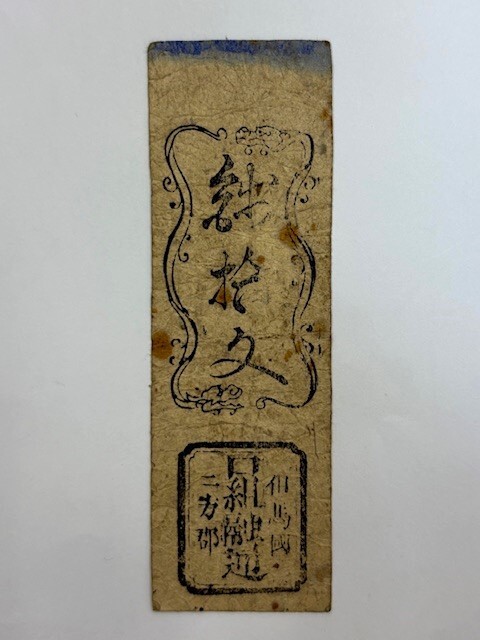 銭拾文
但馬國
二方郡